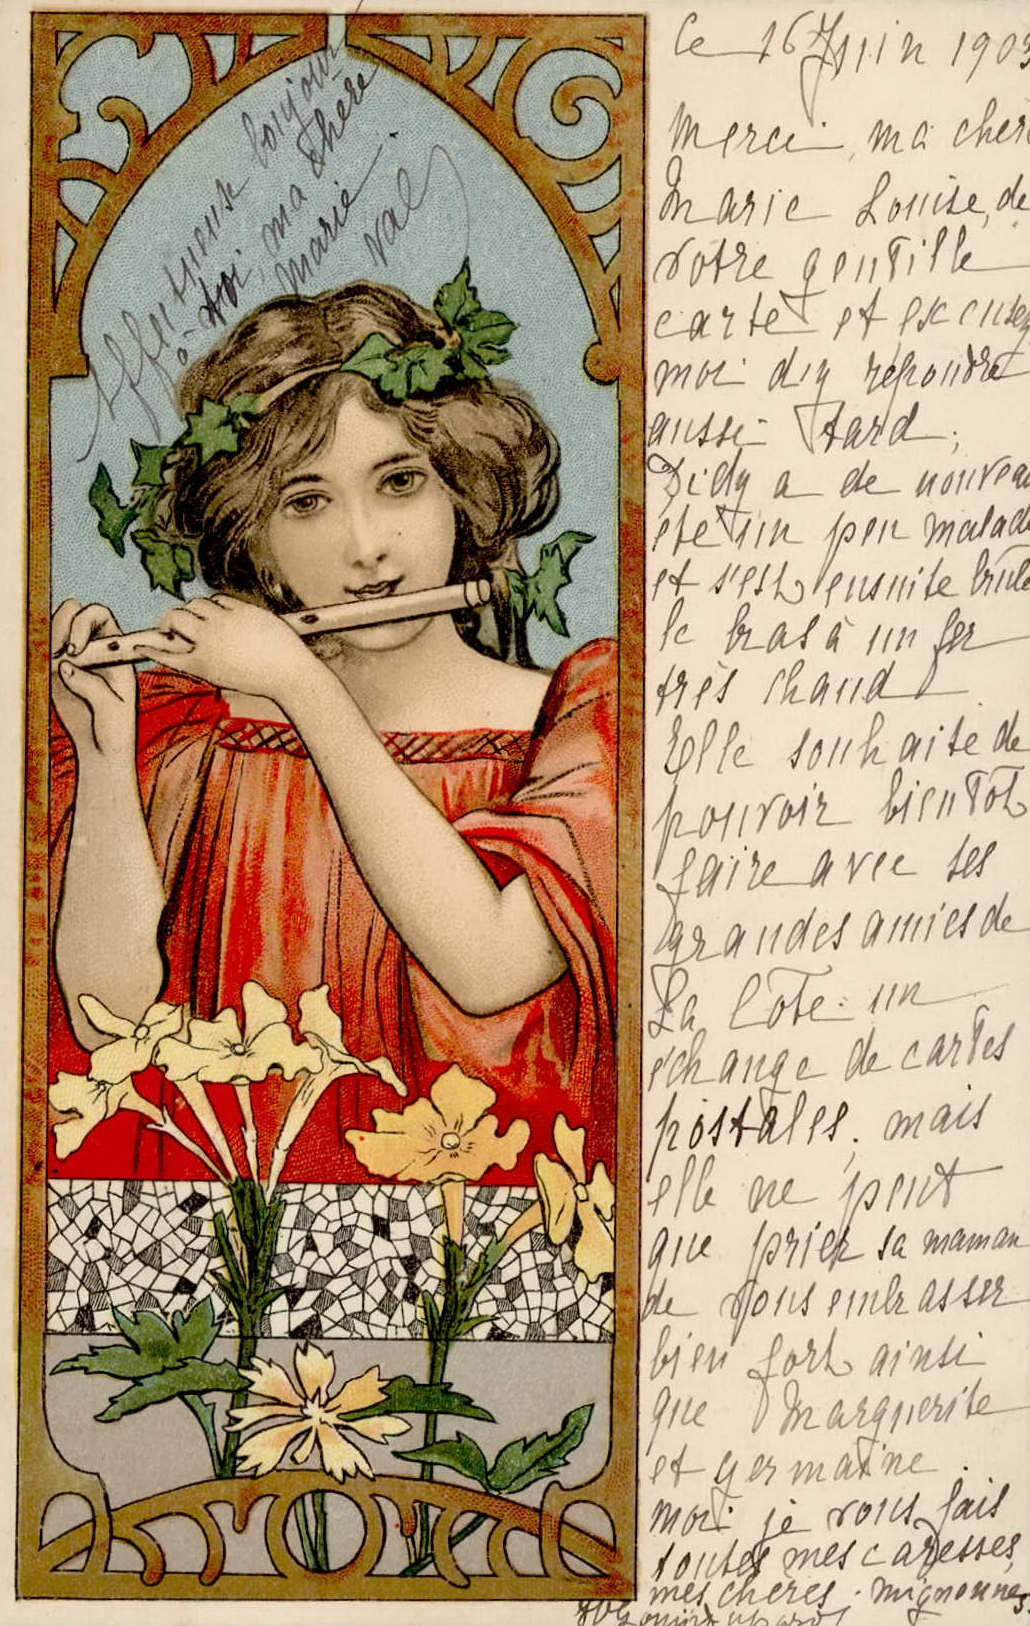 Affectueuse bonjour
à toi, ma chère
Marie.
Val
Ce 16 Juin 1903
Merci, ma chère
Marie Louise, de
votre gentille
carte et excusez
moi d'y répondre
aussi tard.
Didy a de nouveau
été un peu malade
et s'est ensuite brulé
le bras à un fer
très chaud
Elle souhaite de
pouvoir bientôt
faire avec ses
grandes amies de
La Côte un
échange de cartes
postales, mais
elle ne peut
que prier sa maman
de vous embrasser
bien fort ainsi
que Marguerite
et germaine.
moi je vous fais
toutes mes caresses,
mes chères mignonnes.